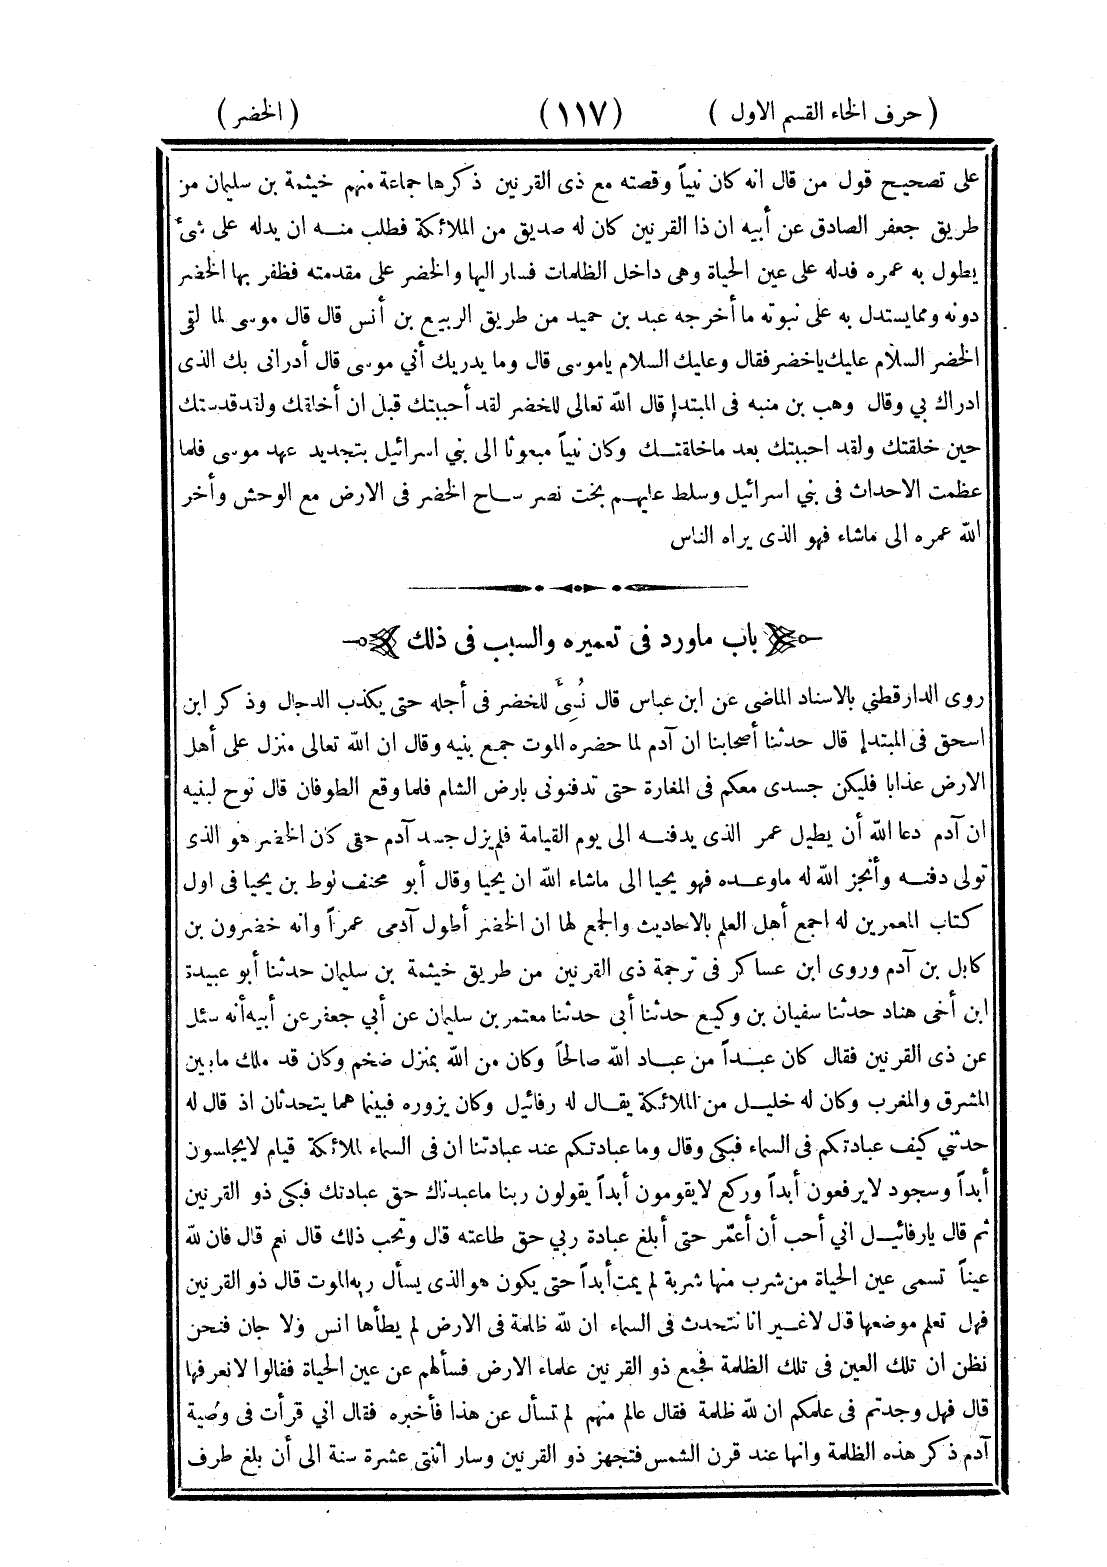 ( حرف الخاء القسم الاول ) (١١٧) (الخضر)
على تصحيح قول من قال انه كان نبياً وقصته مع ذى القرنين ذكرها جماعة منهم خيثمة بن سليمان من
طريق جعفر الصادق عن أبيه ان ذا القرنين كان له صديق من الملائكة فطلب منه ان يدله على شئ
يطول به عمره فدله على عين الحياة وهى داخل الظلمات فسار اليها والخضر على مقدمته فظفر بها الخضر
دونه ومما يستدل به على نبوته ما أخرجه عبد بن حميد من طريق الربيع بن أنس قال قال موسى لما لقى
الخضر السلام عليك ياخضر فقال وعليك السلام ياموسى قال وما يدريك أني موسى قال أدرانى بك الذى
ادراك بي وقال وهب بن منبه فى المبتدإ قال الله تعالى للخضر لقد أحببتك قبل ان أخلقك ولقد قدستك
حين خلقتك ولقد احببتك بعد ماخلقتك وكان نبياً مبعوثا الى بني اسرائيل بتجديد عهد موسى فلما
عظمت الاحداث فى بني اسرائيل وسلط عليهم بخت نصر ساح الخضر فى الارض مع الوحش وأخر
الله عمره الى ماشاء فهو الذى يراه الناس
باب ماورد فى تعميره والسبب فى ذلك
روى الدارقطني بالاسناد الماضى عن ابن عباس قال نُسِئَ للخضر فى أجله حتى يكذب الدجال وذكر ابن
اسحق فى المبتدإ قال حدثنا أصحابنا ان آدم لما حضره الموت جمع بنيه وقال ان الله تعالى منزل على أهل
الارض عذابا فليكن جسدى معكم فى المغارة حتى تدفنونى بارض الشام فلما وقع الطوفان قال نوح لبنيه
ان آدم دعا الله أن يطيل عمر الذى يدفنه الى يوم القيامة فلم يزل جسد آدم حتى كان الخضر هو الذى
تولى دفنه وأنجز الله له ماوعده فهو يحيا الى ماشاء الله ان يحيا وقال أبو مخنف لوط بن يحيا فى اول
كتاب المعمرين له اجمع أهل العلم بالاحاديث والجمع لها ان الخضر أطول آدمى عمراً وانه خضرون بن
كابل بن آدم وروى ابن عساكر فى ترجمة ذى القرنين من طريق خيثمة بن سليمان حدثنا أبو عبيدة
ابن أخى هناد حدثنا سفيان بن وكيع حدثنا أبى حدثنا معتمر بن سليمان عن أبي جعفر عن أبيه أنه سئل
عن ذى القرنين فقال كان عبداً من عباد الله صالحاً وكان من الله بمنزل ضخم وكان قد ملك مابين
المشرق والمغرب وكان له خليل من الملائكة يقال له رفائيل وكان يزوره فبينما هما يتحدثان اذ قال له
حدثني كيف عبادتكم فى السماء فبكى وقال وما عبادتكم عند عبادتنا ان فى السماء لملائكة قيام لايجلسون
أبداً وسجود لايرفعون أبداً وركع لايقومون أبداً يقولون ربنا ماعبدناك حق عبادتك فبكى ذو القرنين
ثم قال يارفائيل اني أحب أن أعمّر حتى أبلغ عبادة ربي حق طاعته قال وتحب ذلك قال نعم قال فان لله
عيناً تسمى عين الحياة من شرب منها شربة لم يمت أبداً حتى يكون هو الذى يسأل ربه الموت قال ذو القرنين
فهل تعلم موضعها قال لاغير انا نتحدث فى السماء ان لله ظلمة فى الارض لم يطأها انس ولا جان فنحن
نظن ان تلك العين فى تلك الظلمة فجمع ذو القرنين علماء الارض فسألهم عن عين الحياة فقالوا لانعرفها
قال فهل وجدتم فى علمكم ان لله ظلمة فقال عالم منهم لم تسأل عن هذا فأخبره فقال اني قرأت فى وصية
آدم ذكر هذه الظلمة وانها عند قرن الشمس فتجهز ذو القرنين وسار اثنتى عشرة سنة الى أن بلغ طرف